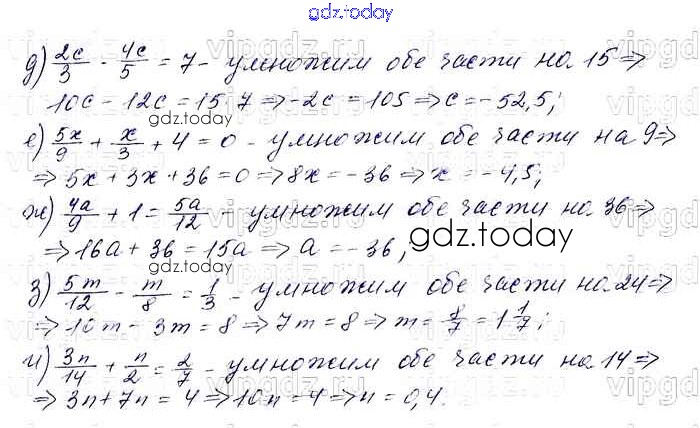 gdz.today
д) 2c/3 - 4c/5 = 7 - умножим обе части на 15 ⇒
10c - 12c = 15·7 ⇒ -2c = 105 ⇒ c = -52,5;
gdz.today
е) 5x/9 + x/3 + 4 = 0 - умножим обе части на 9 ⇒
⇒ 5x + 3x + 36 = 0 ⇒ 8x = -36 ⇒ x = -4,5;
ж) 4a/9 + 1 = 5a/12 - умножим обе части на 36 ⇒
gdz.today
⇒ 16a + 36 = 15a ⇒ a = -36;
з) 5m/12 - m/8 = 1/3 - умножим обе части на 24 ⇒
⇒ 10m - 3m = 8 ⇒ 7m = 8 ⇒ m = 8/7 = 1 1/7;
и) 3n/14 + n/2 = 2/7 - умножим обе части на 14 ⇒
⇒ 3n + 7n = 4 ⇒ 10n = 4 ⇒ n = 0,4.
gdz.today